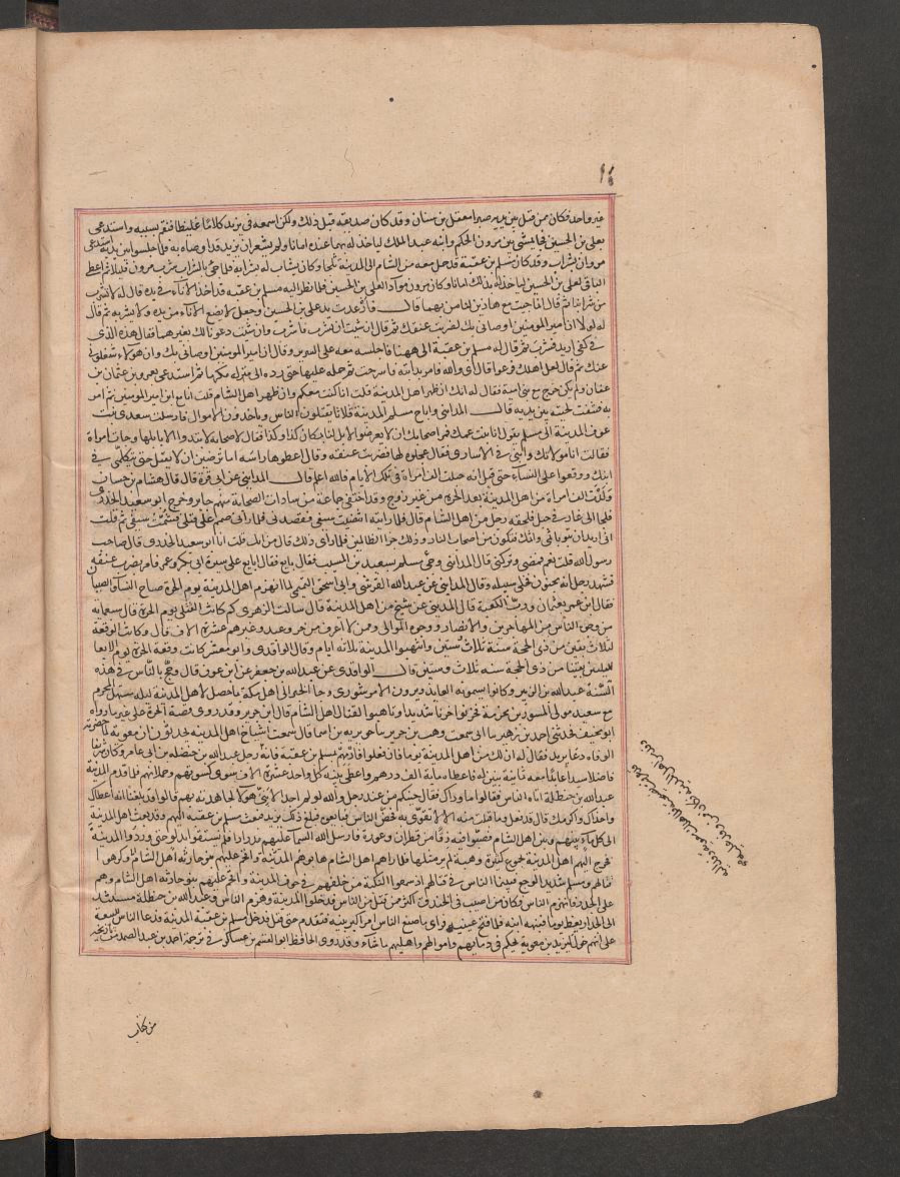 غير واحد فكان من قتل بين يديه صبرا معقل بن سنان وقد كان صديقه قبل ذلك ولكن اسمعه في يزيد كلاما غليظا فنقم بسببه واستدعى
بعلي بن الحسين فجا يمشي بين مرون بن الحكم وابنه عبد الملك لياخذ له بهما عنده امانا ولم يشعر ان يزيد قد اوصاه به فلما جلسوا بين يديه استدعى
مروان بشراب وقد كان مسلم بن عقبة قد حمل معه من الشام الى المدينة ثلجا وكان يشاب له بشرابه فلما جي بالشراب شرب مرون قليلا ثم اعطى
الباقي لعلي بن الحسين لياخذ له بذلك امانا وكان مرون مواد لعلي بن الحسين فلما نظر اليه مسلم بن عقبه قد اخذ الاناء في يده قال له لا تشرب
من شرابنا ثم قال انما جيت مع هاذين لتامن بهما قال فارعدت يد علي بن الحسين وجعل لا يضع الاناء من يده ولا يشربه ثم قال
له لولا ان امير المومنين اوصاني بك لضربت عنقك ثم قال ان شيت ان تشرب فاشرب وان شيت دعونا لك بغيرها فقال هذه الذي
في كفي اريد فشرب ثم قال له مسلم بن عقبة الى ههنا فاجلسه معه على السرير وقال ان امير المومنين اوصاني بك وان هولاء شغلوني
عنك ثم قال لعل اهلك فزعوا قال اي والله فامر بدابته فاسرجت ثم حمله عليها حتى رده الى منزله مكرما ثم استدعى بعمرو بن عثمان بن
عفان ولم يكن خرج مع بني امية فقال له انك ان ظهر اهل المدينة قلت انا كنت معكم وان ظهر اهل الشام قلت انا بن امير المومنين ثم امر
به فنتفت لحيته بين يديه قال المدايني واباح مسلم المدينة ثلاثا يقتلون الناس وياخذون الاموال فارسلت سعدى بنت
عوف المدينة الى مسلم تقول انا بنت عمك فمر اصحابك ان لا يعرضوا لابل لنا بمكان كذا وكذا فقال لاصحابه لا تبدوا الا بابلها وجات امراة
فقالت انا مولاتك وابني في الاسارى فقال عجلوه لها فضربت عنقه وقال اعطوها راسه اما ترضين ان لا يقتل حتى تتكلمي في
ابنك ووقعوا على النساء حتى قيل انه حبلت الف امراة في تلك الايام فالله اعلم قال المدايني عن ابي قرة قال قال هشام بن حسان
ولدت الف امراة من اهل المدينة بعد الحرة من غير زوج وقد اختفى جماعة من سادات الصحابة منهم جابر وخرج ابو سعيد الخدري
فلجا الى غار في جبل فلحقه رجل من اهل الشام قال فلما رايته انتضيت سيفي فقصدني فلما راني صمم على قتلي فشمت سيفي ثم قلت
اني اريد ان تبوء باثمي واثمك فتكون من اصحاب النار وذلك جزا الظالمين فلما راى ذلك قال من انت قلت انا ابو سعيد الخدري قال صاحب
رسول الله قلت نعم فمضى وتركني قال المدايني وجي مسلم بسعيد بن المسيب فقال بايع فقال ابايع على سيرة ابي بكر وعمر فامر بضرب عنقه
فشهد رجل انه مجنون فخلى سبيله وقال المدايني عن عبد الله القرشي وابي اسحق التميمي لما انهزم اهل المدينة يوم الحرة صاح النسا والصبيا
فقال ابن عمر بعثمان ورب الكعبة قال المديني عن شيخ من اهل المدينة قال سالت الزهري كم كانت القتلى يوم الحرة قال سبعمايه
من وجوه الناس من المهاجرين والانصار ووجوه الموالى وممن لا اعرف من حر وعبد وغيرهم عشرة الاف قال وكانت الوقعة
لثلاث بقين من ذي الحجة سنة ثلاث وستين وانتهبوا المدينة ثلاثه ايام وقال الواقدي وابو معشر كانت وقعة الحرة يوم الاربعا
لليلتين بقيتا من ذي الحجة سنه ثلاث وستين قال الواقدي عن عبد الله بن جعفر عن ابن عون قال وحج بالناس في هذه
السنة عبد الله بن الزبير وكانوا يسمونه العايذ ويرون الامر شورى وجا الخبر الى اهل مكة بما حصل لاهل المدينة ليله مستهل المحرم
مع سعيد مولى المسور بن مخرمة فحزنوا حزنا شديدا وتاهبوا لقتال اهل الشام قال ابن جرير وقد روى قصة الحرة على غير ما رواه
ابو مخنف فحدثني احمد بن زهير ثنا ابي سمعت وهب بن جرير ثنا جويريه بن اسما قال سمعت اشياخ اهل المدينه يحدثون ان معوية لما حضرته
الوفاه دعا يزيد فقال له ان لك من اهل المدينة يوما فان فعلوا فارمهم بمسلم بن عقبة فانه رجل عبد الله بن حنظله بن ابي عامر وكان شريفا
فاضلا سيدا عابدا معه ثمانية بنين له فاعطاه ماية الف درهم واعطى بنيه كل واحد عشرة الاف سوى كسوتهم وحملانهم فلما قدم المدينة
عبد الله بن حنظلة اتاه الناس فقالوا ما وراك فقال جيتكم من عند رجل والله لو لم اجد الا بني هولا لجاهدته بهم قالوا قد بلغنا انه اعطاك
واخذاك واكرمك قال قد فعل وما قبلت منه الا لاتقوى به فحض الناس فبايعوه فبلغ ذلك يزيد فبعث مسلم بن عقبة اليهم وقد بعث اهل المدينة
الى كل ماء بينهم وبين اهل الشام فصبوا فيه زقا من قطران وعوره فارسل الله السما عليهم مدرارا فلم يستقوا بدلو حتى وردوا المدينة
فخرج اليهم اهل المدينة بجموع كثيرة وهيبة لم ير مثلها فلما راهم اهل الشام هابوهم
قتالهم ومسلم شديد الوجع فبينا الناس في قتالهم اذ سمعوا التكبير من خلفهم في جوف المدينة واقحم عليهم بنو حارثه اهل الشام وهم
على الجدر فانهزم الناس فكان من اصيب في الخندق اكثر ممن قتل من الناس فدخلوا المدينة وهزم الناس وعبد الله بن حنظلة مستند
الى الجدار يغط نوما فنبهه ابنه فلما فتح عينيه وراى ما صنع الناس امر اكبر بنيه فتقدم حتى قتل فدخل مسلم بن عقبة المدينة فدعا الناس للبيعة
على انهم خول ليزيد بن معوية يحكم في دمايهم واموالهم واهليهم ما شاء وقد روى الحافظ ابو القسم بن عساكر في ترجمة احمد بن عبد الصمد من تاريخه
من كتاب